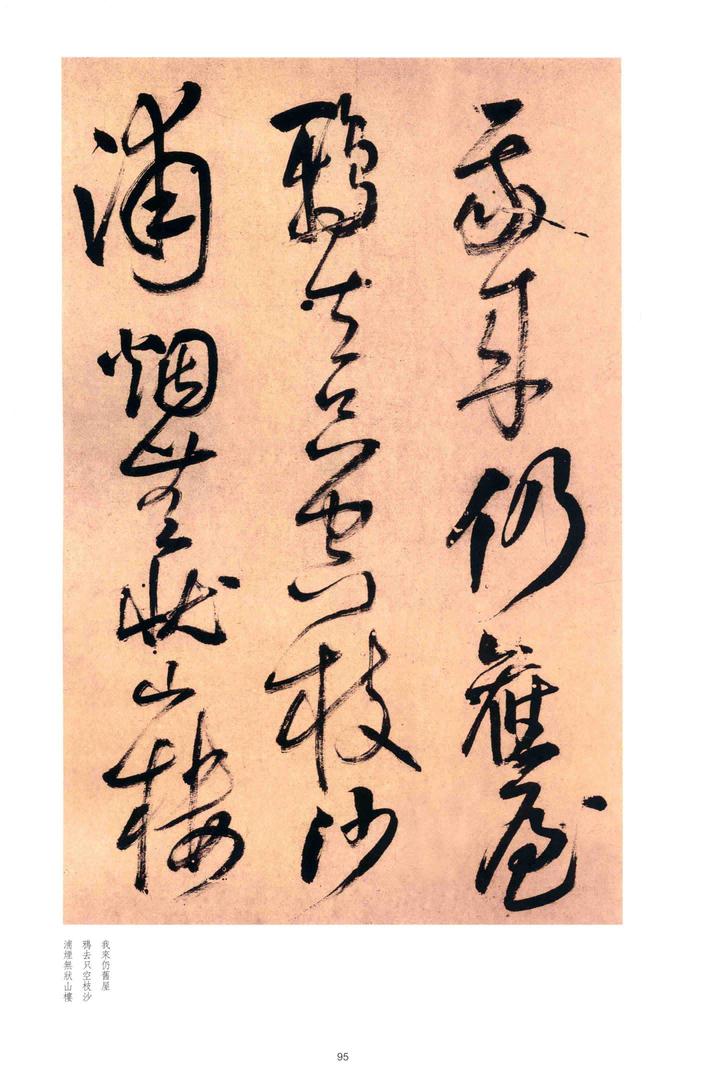 我来仍舊屋
鴉去只空枝沙
浦烟無狀山樓
我來仍舊屋
鴉去只空枝沙
浦煙無狀山樓
95